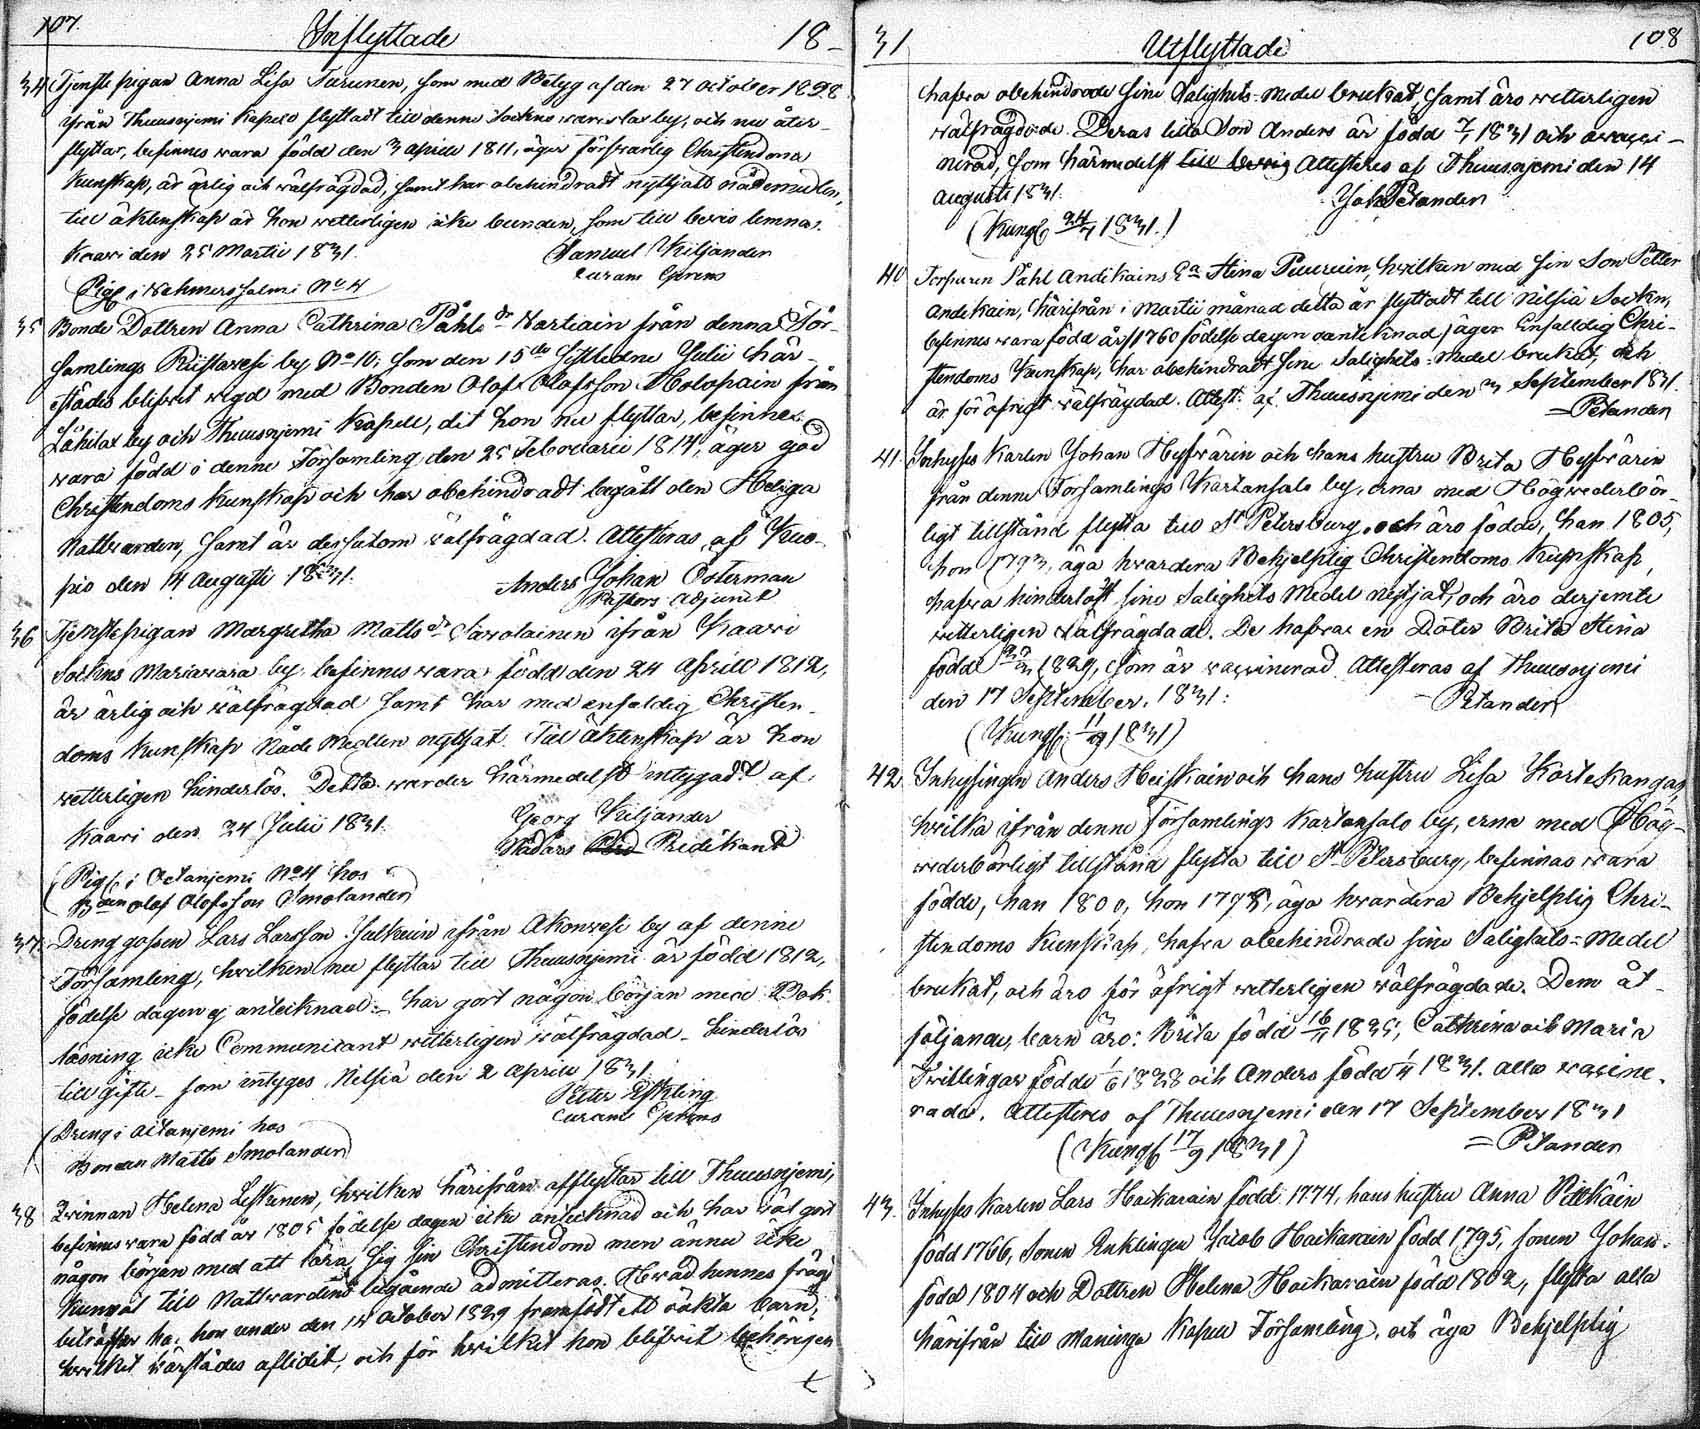 107. Inflyttade 18-
34 Tjenste pigan Anna Lisa Turunen, som med Betyg af den 27 october 1828
ifrån Thuusnjemi Kapell flyttadt till denne Sockns warislax by, och nu åter-
flyttar, befinnes wara född den 3 aprill 1811, äger förswarlig Christendoms
Kunskap, är ärlig och wälfrägdad, samt har obehindradt nyttjadt nådemedlen,
till äktenskap är hon wetterligen icke bunden, som till bewis lemnas.
Kaawi den 25 Martii 1831. Samuel Kiljander
curam gerens
(Piga i Wehmersalmi No 4
35 Bonde Dottren Anna Cathrina Påhls dr Wartiain från denna För-
samlings Riistawesi by No 10, som den 15de sistledne Julii här-
städes blifwit wigd med Bonden Olof Olofsson Holopain från
Lähilax by och Thuusnjemi Kapell, dit hon nu flyttar, befinnes
wara född i denne Församling den 25 Februarii 1814, äger god
Christendoms Kunskap och har obehindradt begått den Heliga
Nattwarden, samt är dessutom wälfrägdad. Attesteras af Kuo-
pio den 14 Augusti 1831. Anders Johan Österman
Pastors Adjunct
36 Tjenstepigan Margretha Matts dr Sawolainen ifrån Kaawi
Sockns Mariawara by, befinnes wara född den 24 Aprill 1812,
är ärlig och wälfrägdad samt har med enfaldig Christen-
doms Kunskap Nåde Medlen nyttjat. Till äktenskap är hon
wetterligen hinderlös. Detta warder härmedelst intygadt af
Kaawi den 24 Julii 1831. Georg Kiljander
Nådårs Predikant
(Piga i Actanjemi No 4 hos
Bonden Olof Olofsson Smolander)
37 Dreng gossen Lars Larsson Jalkain ifrån Akonwesi by af denne
Församling, hwilken nu flyttar till Thuusnjemi är född 1812,
födelse dagen ej antecknad - har gort någon början med Bok
läsning icke Communicant wetterligen wälfrägdad - hinderlös
till gifte - som intyges Nilsiä den 2 Aprill 1831.
Petter Eskling
curam gerens
(Dreng i Aitanjemi hos
Bonden Matts Smolander)
38 Qvinnan Helena Leskinen, hwilken härifrån afflyttar till Thuusnjemi,
befinnes wara född år 1805 födelse dagen icke antecknad och har wäl gort
någon början med att lära sig sin Christendom men ännu icke
kunnat till Nattwardens begående admitteras. Hwad hennes frägd
beträffar ha. hon under den 14 October 1829 framfödt ett oäkta barn,
hwilket härstädes aflidit, och för hwilket hon blifwit behörigen
31 Utflyttade 108
hafwa obehindrade sine Salighets-Medel brukat, samt äro wetterligen
wälfrägdade. Deras lilla Son Anders är född 7/7 1831 och vacci-
nerad, som härmedelst till bewis Attesteres af Thuusnjemi den 14
Augusti 1831. Joh Petander
(Kungf. 24/7 1831.)
40 Torparen Påhl Andikains Ea Stina Puuruin, hwilken med sin Son Petter
Andikain, härifrån i Martii månad detta år flyttadt till Nilsiä Sockn,
befinnes wara född år 1760 (födelse dagen oantecknad) äger Enfaldig Chri-
stendoms Kunskap, har obehindradt sine Salighets-Medel brukat, och
är för öfrigt wälfrägdad. Attest: af Thuusnjemi den 3 September 1831.
Petander
41. Inhyses Karlen Johan Hyfwärin och hans hustru Brita Hyfwärin
från denne Församlings Kartansalo by, erna med Högwederbör-
ligt tillstånd flytta till St Petersburg, och äro födde, han 1805,
hon 1793, äga hwardera Behjelplig Christendoms Kunskap,
hafwa hinderlöst sine Salighets Medel nyttjat, och äro derjemte
wetterligen wälfrägdade. De hafwa en Dotter Brita Stina
född 1829, som är vaccinerad Attesteras af Thuusnjemi
den 17 September, 1831: Petander
(Kungf: 11/9 1831)
42 Inhysingen Anders Heiskain och hans hustru Lisa Kortekangas,
hwilka ifrån denne Församlings Kartansalo by, erna med Hög-
wederbörligt tillstånd flytta till St Petersburg, befinnas wara
födde, han 1800, hon 1798, äga hwardera Behjelplig Chri-
stendoms Kunskap, hafwa obehindrade sine Salighets-Medel
brukat, och äro för öfrigt wetterligen wälfrägdade. Dem åt-
följande barn äro: Brita född 1825; Cathrina och Maria
Twillingar födde 1828 och Anders född 1831. alla vaccine-
rade. Attesteres af Thuusnjemi den 17 September 1831
(Kungf 17/9 1831) Petander
43. Inhyses Karlen Lars Haikarain född 1774, hans hustru Anna Pitkäin
född 1766, Sonen Enklingen Jacob Haikarain född 1795, sonen Johan
född 1804 och Dottren Helena Haikarain född 1802, flytta alla
härifrån till Maninga Kapell Församling, och äga Behjelplig